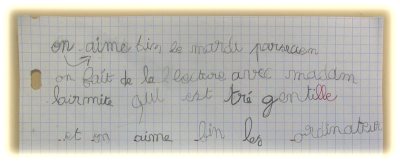 on aime bin le mardi parsecon
on fait de la lecture avec madam
lairmite qui est tré gentille
et on aime bin les ordinateur